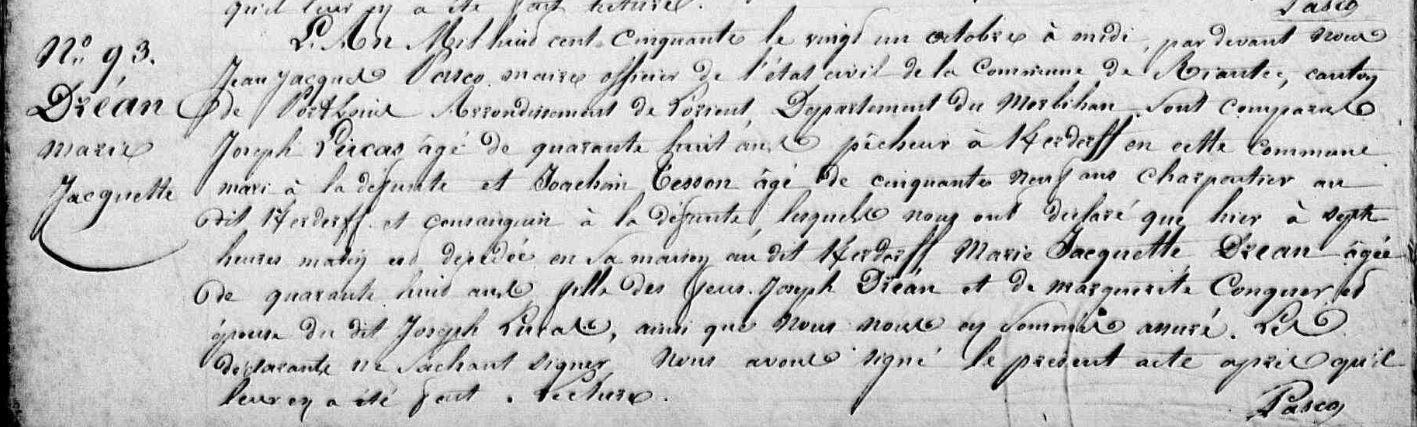 qu'il leur en a été fait lecture.
Pasco
N° 93.
Dréan
Marie
Jacquette
L'An Mil huit cent cinquante le vingt un octobre à midi, par devant Nous
Jean Jacques Pasco maire officier de l'état civil de la Commune de Riantec, canton
de Port Louis Arrondissement de Lorient, Département du Morbihan sont comparus
Joseph Lucas âgé de quarante huit ans pêcheur à Kerderff en cette Commune
mari à la défunte et Joachim Tesson âgé de cinquante neuf ans charpentier au
dit Kerderff et consanguin à la défunte, lesquels nous ont déclaré que hier à sept
heures matin est décédée en sa maison au dit Kerderff Marie Jacquette Dréan âgée
de quarante huit ans fille des feus Joseph Dréan et de Marguerite Conguer et
épouse du dit Joseph Lucas, ainsi que Nous nous en sommes assuré. Les
déclarants ne sachant signer Nous avons signé le présent acte après qu'il
leur en a été fait lecture.
Pasco